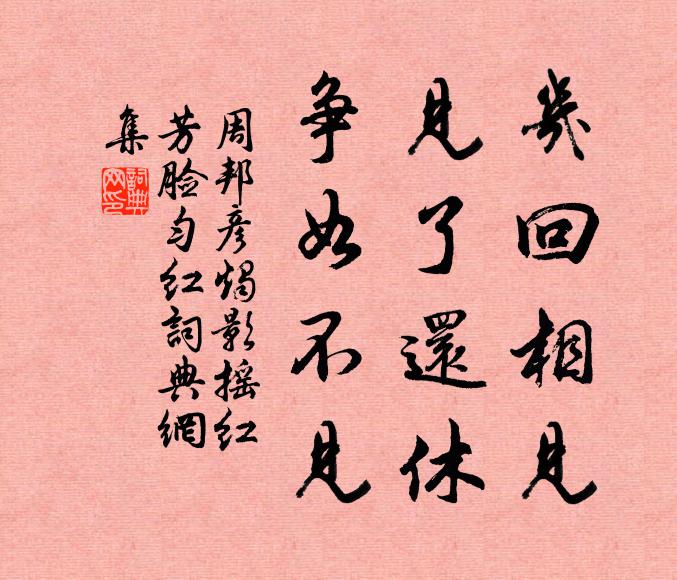 幾回相見
見了還休
爭如不見
周邦彥燭影搖紅
芳臉勻紅詞典網
集
詞典網印